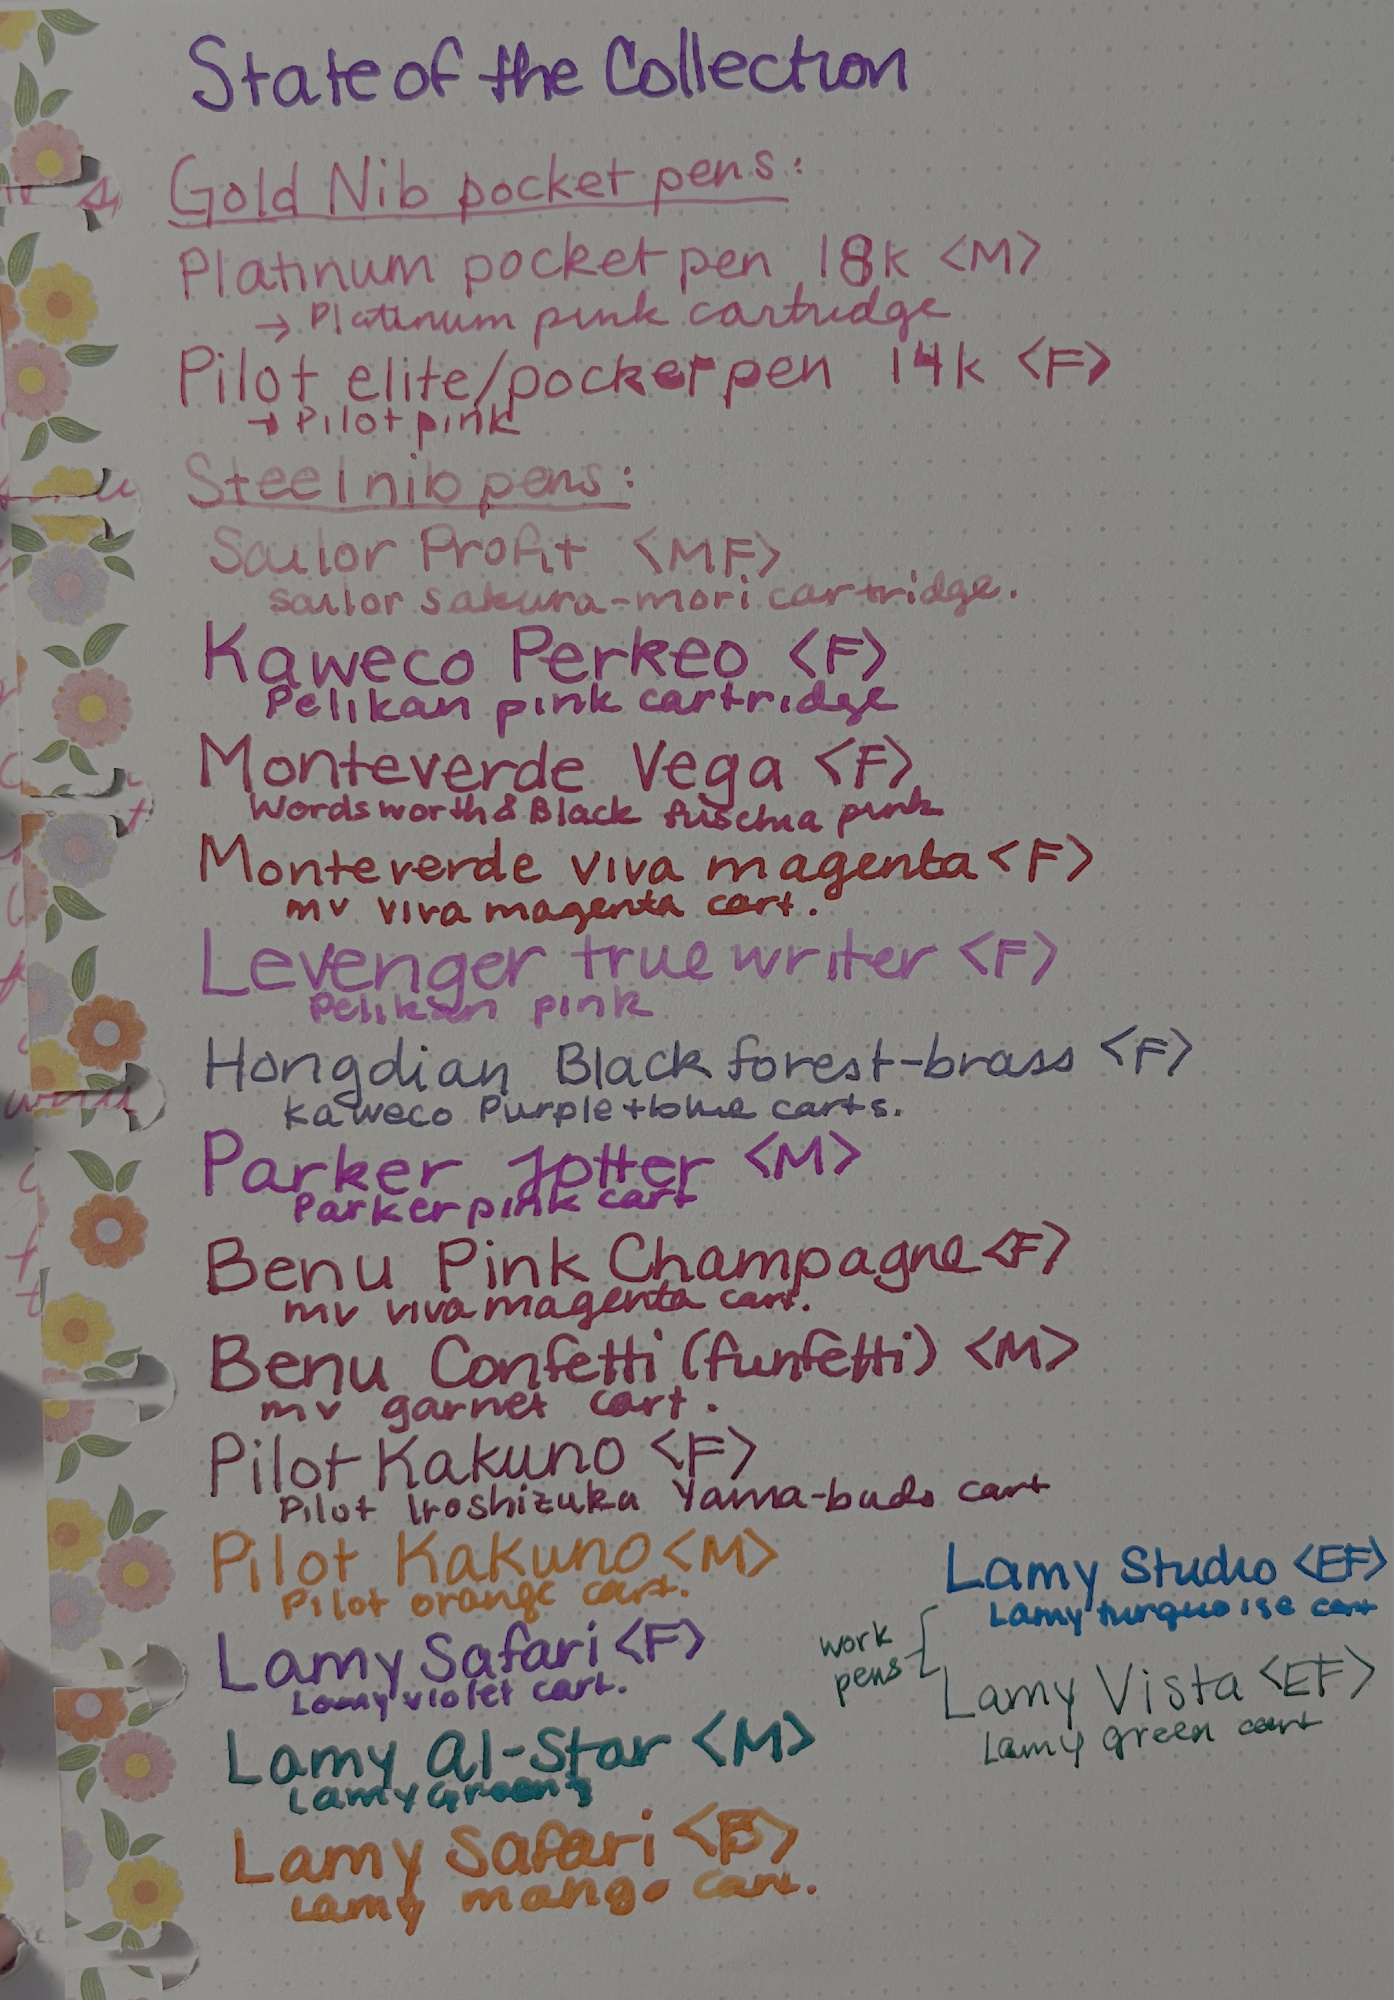 State of the Collection
Gold Nib pocket pens:
Platinum pocket pen 18k <M>
→ Platinum pink cartridge
Pilot elite/pocket pen 14k <F>
→ Pilot pink
Steel nib pens:
Sailor Profit <MF>
sailor sakura-mori cartridge.
Kaweco Perkeo <F>
Pelikan pink cartridge
Monteverde Vega <F>
Wordsworth & Black fuschia pink
Monteverde viva magenta <F>
mv viva magenta cart.
Levenger true writer <F>
Pelikan pink
Hongdian Black forest-brass <F>
Kaweco Purple + blue carts.
Parker Jotter <M>
Parker pink cart
Benu Pink Champagne <F>
mv viva magenta cart.
Benu Confetti (funfetti) <M>
mv garnet cart.
Pilot Kakuno <F>
Pilot Iroshizuku Yama-budo cart
Pilot Kakuno <M>
Pilot orange cart.
Lamy Safari <F>
Lamy violet cart.
Lamy al-Star <M>
Lamy Green
Lamy Safari <B>
Lamy mango cart.
work pens
Lamy Studio <EF>
Lamy turquoise cart
Lamy Vista <EF>
Lamy green cart